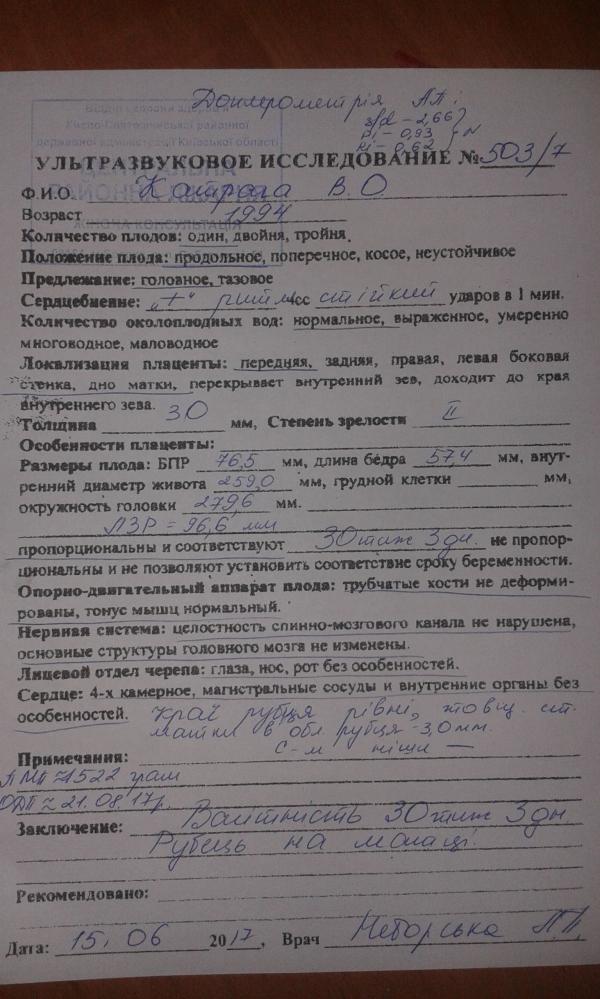 Доплерометрія АП:
s/d - 2,66
Pi - 0,93 } N
Ri - 0,62
Києво-Святошинської районної
державної адміністрації Київської області
ЦЕНТРАЛЬНА
РАЙОННА
ЖІНОЧА КОНСУЛЬТАЦІЯ
УЛЬТРАЗВУКОВОЕ ИССЛЕДОВАНИЕ № 503/7
Ф.И.О. В. О.
Возраст 1994
Количество плодов: один, двойня, тройня.
Положение плода: продольное, поперечное, косое, неустойчивое
Предлежание: головное, тазовое
Сердцебиение: „+“ ритм. чсс стійкий ударов в 1 мин.
Количество околоплодных вод: нормальное, выраженное, умеренно
многоводное, маловодное
Локализация плаценты: передняя, задняя, правая, левая боковая
стенка, дно матки, перекрывает внутренний зев, доходит до края
внутреннего зева.
Толщина 30 мм, Степень зрелости II
Особенности плаценты:
Размеры плода: БПР 76,5 мм, длина бедра 57,4 мм, внут-
ренний диаметр живота 259,0 мм, грудной клетки мм,
окружность головки 279,6 мм.
ЛЗР = 96,6 мм
пропорциональны и соответствуют 30 тиж 3 дн. не пропор-
циональны и не позволяют установить соответствие сроку беременности.
Опорно-двигательный аппарат плода: трубчатые кости не деформи-
рованы, тонус мышц нормальный.
Нервная система: целостность спинно-мозгового канала не нарушена,
основные структуры головного мозга не изменены.
Лицевой отдел черепа: глаза, нос, рот без особенностей.
Сердце: 4-х камерное, магистральные сосуды и внутренние органы без
особенностей. Краї рубця рівні, товщ. ст.
матки в обл. рубця - 3,0 мм.
С-м ніши —
Примечания:
ПМП ≈ 1522 грам
ОДП ≈ 21.08.17р.
Заключение: Вагітність 30 тиж 3 дн.
Рубець на матці.
Рекомендовано:
Дата: 15. 06 2017, Врач